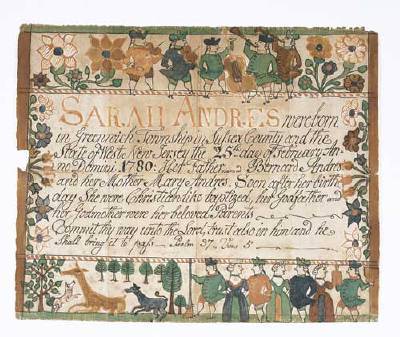 SARAH ANDRES were born
in Greenwich Township in Sussex County and the
State of West New Jersey the 25th day of February An-
no Domini 1780. Her Father Bernard Andres
and her Mother Mary Andres. Soon after her birth
day She were Christian like baptized, her Godfather and
her Godmother were her beloved Parents
Commit thy way unto the Lord, trust also in him and he
Shall bring it to pass Psalm 37. Vers 5